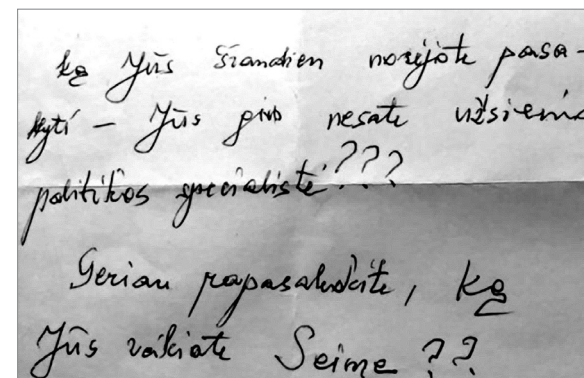 ką Jūs šiandien norėjote pasa-
kyti – Jūs gi nesate užsienio
politikos specialistė???
Geriau papasakokite, ką
Jūs veikiate Seime??